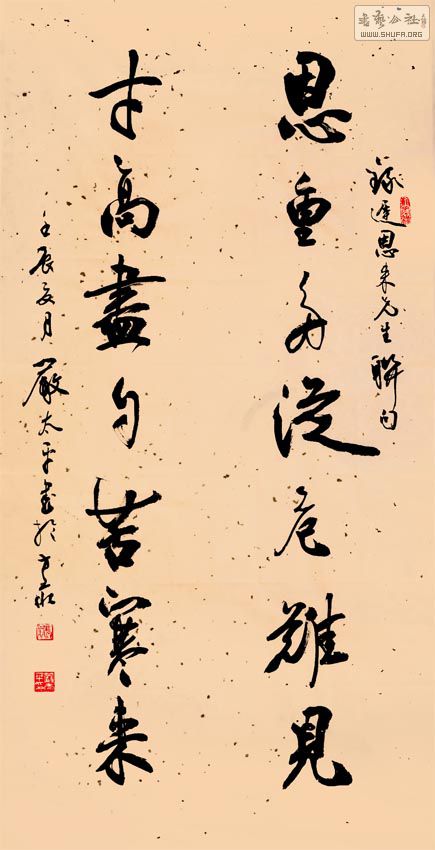 書藝公社
WWW.SHUFA.ORG
錄遲恩來先生聯句
恩重多從危難見
才高盡自苦寒來
壬辰夏月嚴太平書於